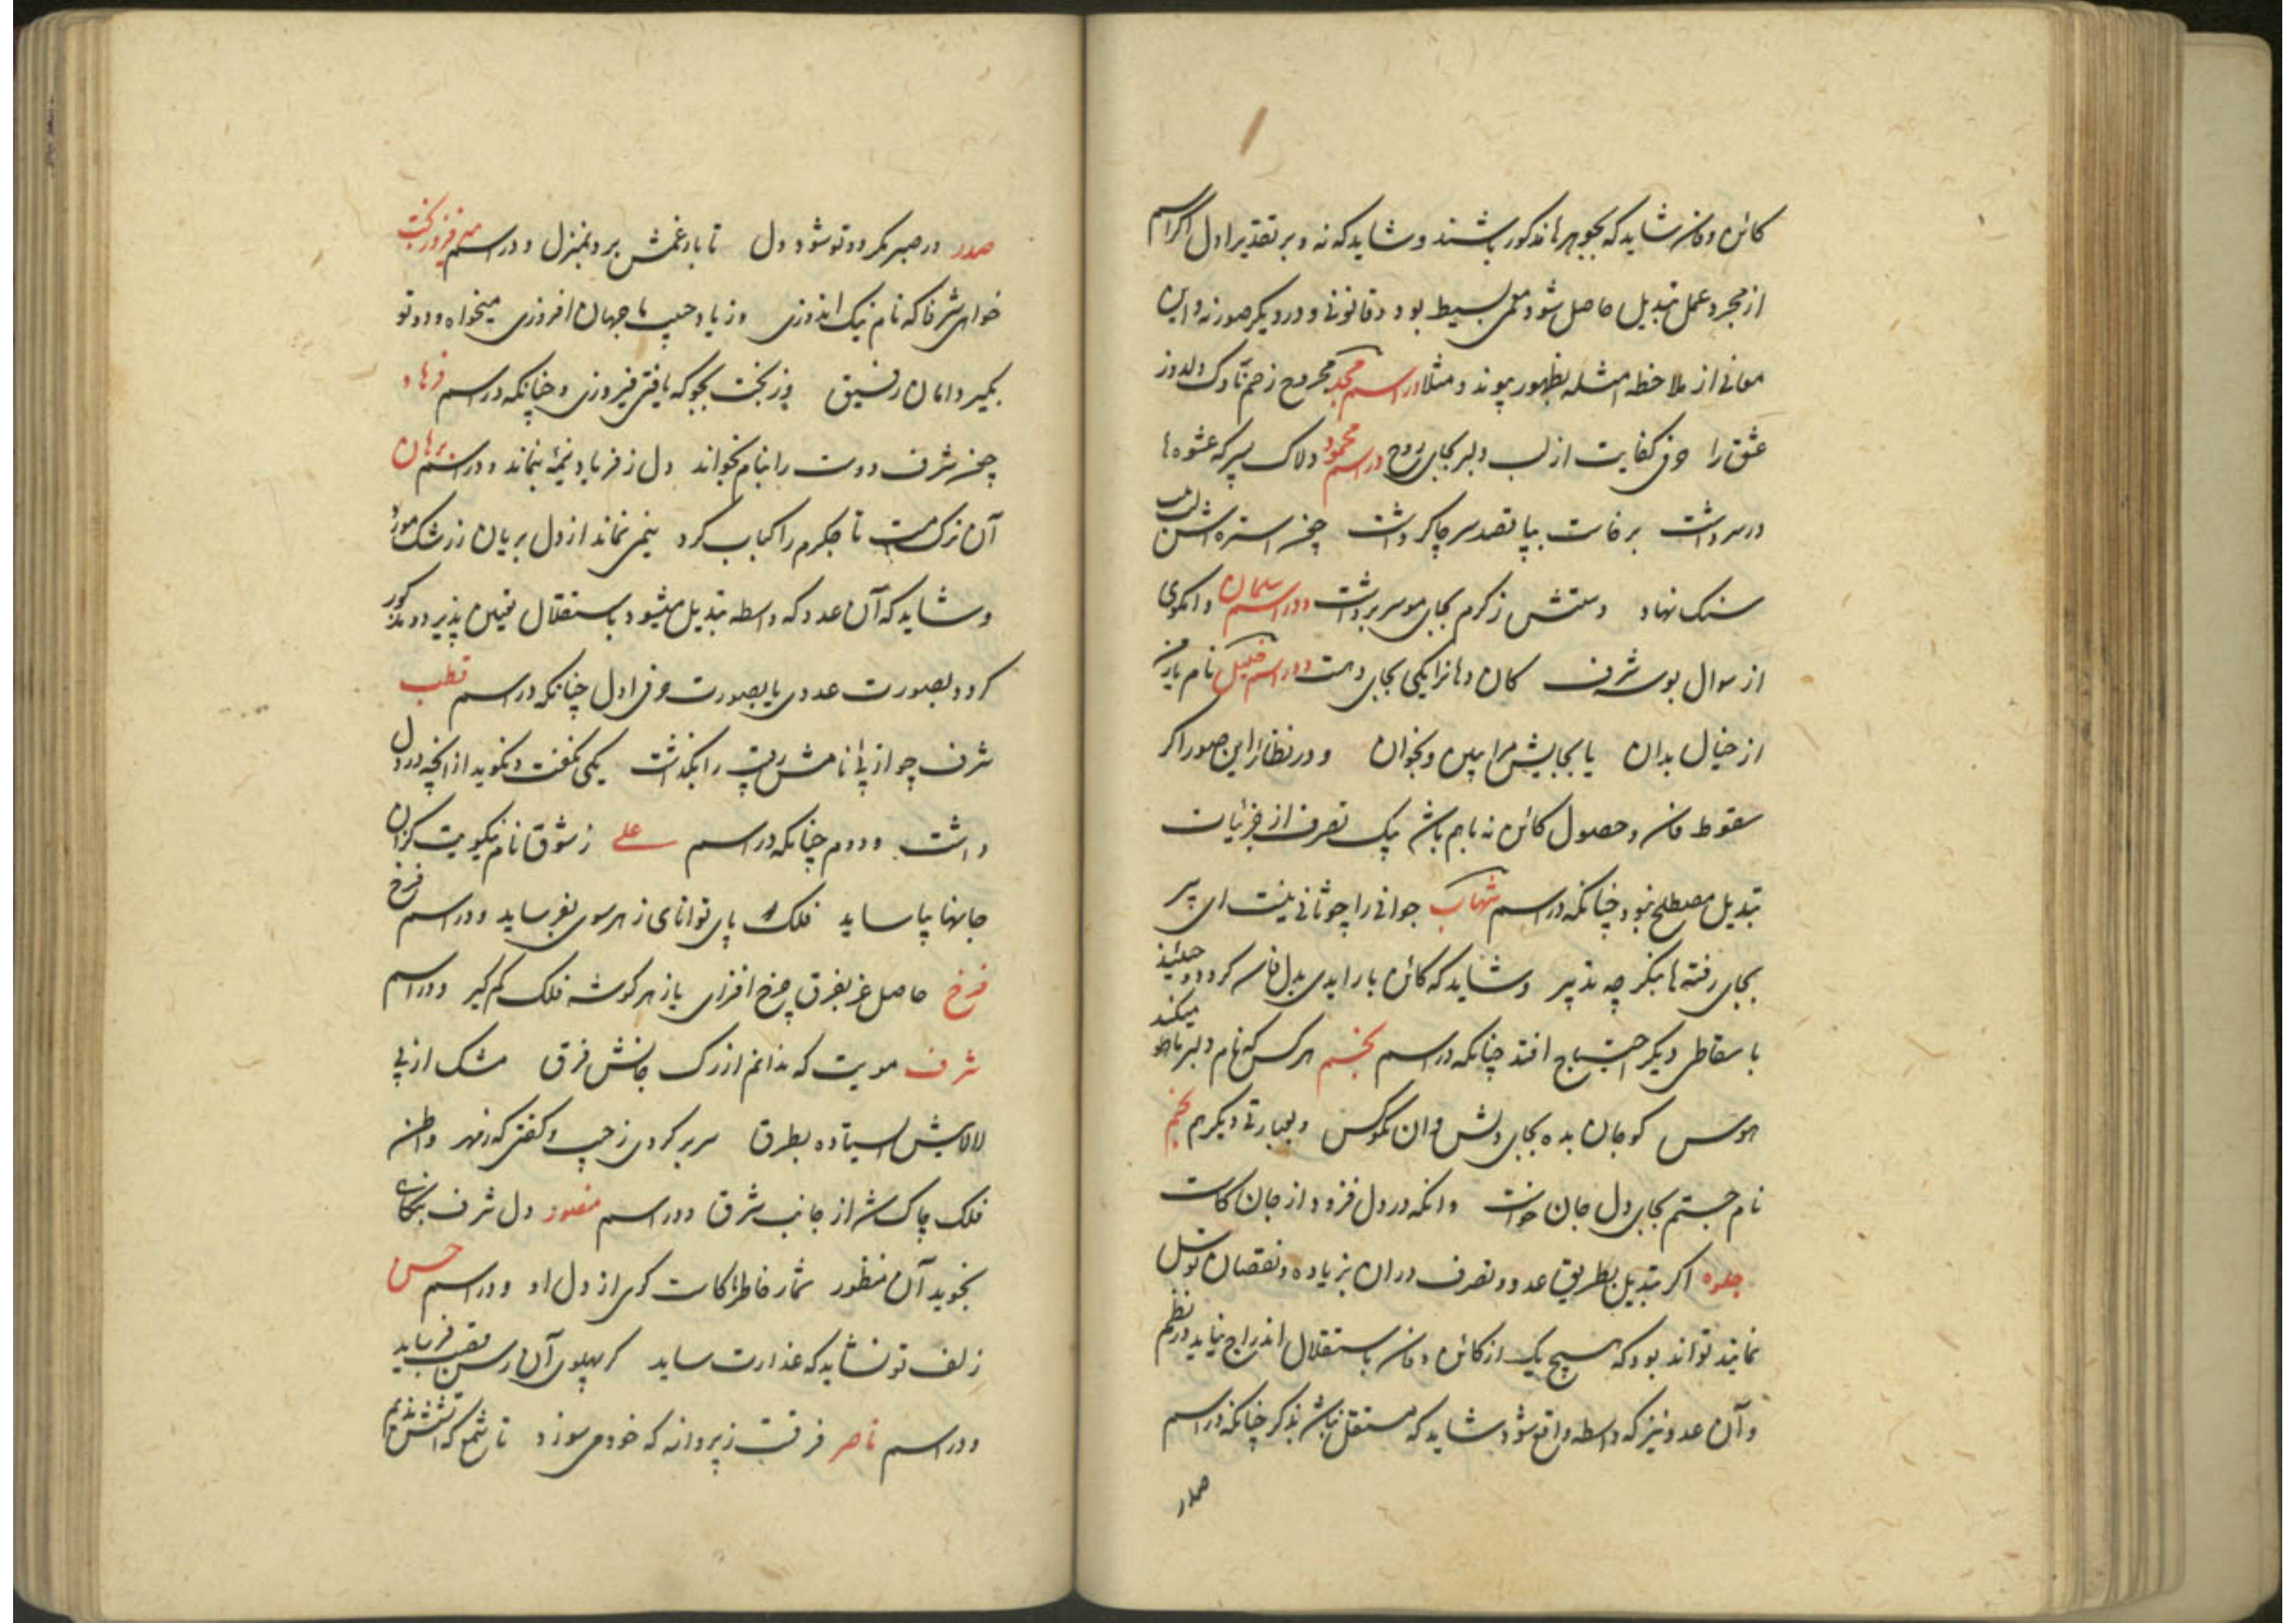 کائن و فان شاید که بجوهرها مذکور باشند و شاید که نه و بر تقدیر اول اگر اسم
از مجرد عمل تبدیل حاصل شود معمی بسیط بود و قانونی و در دیگر صور نه و این
معانی از ملاحظه امثله بظهور پیوندد مثلا در اسم محمد مجروح زخم ناوک دلدوز
عشق را حرفی کفایت از لب دلبر بجای روح در اسم محمود دلاک پسر که عشوه ها
در سر داشت برخاست بپا قصد سر چاکر داشت چون استره اش لب
سنک نهاد دستش ز کرم بجای مو سر برداشت و در اسم سلمان وانکوی
از سوال بوسه شرف کان دهانرا یکی بجای دهست و در اسم خلیل نام یار من
از خیال بدان یا بجایش مرا ببین و بخوان و در نظائر این صور اگر
سقوط فان و حصول کائن نه باهم باشد بیک تصرف از جزئیات
تبدیل مصطلح نبود چنانکه در اسم شهاب جوانی را چو ثانی نیست ای پیر
بجای رفته ها بنکر چه تدبیر و شاید که کائن با رایدی بدل فان کردد و حینئذ
باسقاطی دیگر احتیاج افتد چنانکه در اسم نجم هر کس که نام دلبر ما میکند
هوس کو جان بده بجای دلش وان نکو کس و بعبارتی دیگر هم نجم
نام جستم بجای دل جان خواست وانکه در دل فزود از جان کاست
جلوه اگر تبدیل بطریق عدد و تصرف در ان بزیاده و نقصان توسل
نمایند تواند بود که هیچ یک از کائن و فان باستقلال اندراج نیابد در نظم
و آن عدد نیز که واسطه واقع شود شاید که مستقل نباشد بذکر چنانکه در اسم
صدر
صدر در صبر مکر دو تو شود دل تا بار غمش برد بمنزل و در اسم فیروزبخت
خواهی شرفا که نام نیک اندوزی وز یاد حبیب ما جهان افروزی میخواه و دو تو
بکیر دامان رفیق وز بخت بجو که یافتی فیروزی و چنانکه در اسم فرهاد
چون شرف دوست را بنام بخواند دل ز فریاد نیمه بنماند و در اسم برهان
آن ترک مست تا جکرم را کباب کرد نیمی نماند از دل بریان ز رشک مورد
و شاید که آن عدد که واسطه تبدیل میشود باستقلال تعیین پذیرد و مذکور
کردد بصورت عددی یا بصورت حرفی اول چنانکه در اسم قطب
شرف چو از پی نامش رقیب را بگذشت یکی نکفت و نکوید از انچه در دل
داشت و دوم چنانکه در اسم علی ز شوق نام نیکویت کزان
جانها بیاساید فلک را پای توانای ز هر سوی بفرساید و در اسم فرخ
فرخ حاصل عز بفرق چرخ افزای باز هر کوشه فلک کم کیر و در اسم
شرف مویت که ندانم از رک جانش فرق مشک از پی
لالایش استاده بطرق سر بر کردی ز جیب و کفتی که ز مهر دامن
فلک چاک شد از جانب شرق و در اسم منصور دل شرف بتکای
بجوید آن منظور شمار خاطر ما کاست کوی از دل او و در اسم حسن
زلف تو نشاید که عذارت ساید کر پهلوی آن رسن نقب فرساید
و در اسم ناصر فرقت ز پروانه که خود می سوزد تا شمع که آتشش ندیم